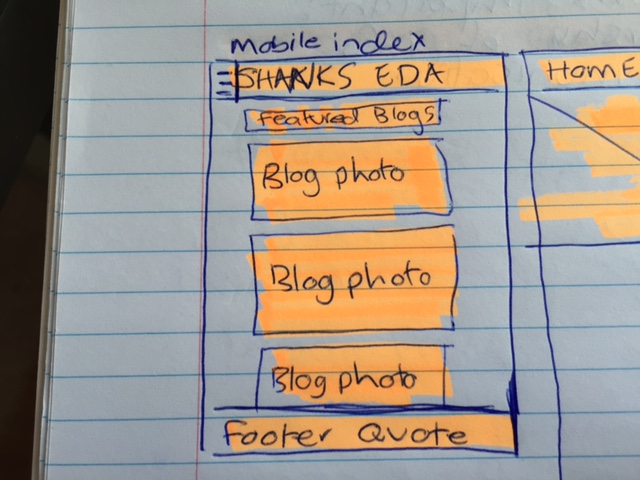 Mobile index
SHANKS EDA
HOME
Featured Blogs
Blog photo
Blog photo
Blog photo
Footer Quote